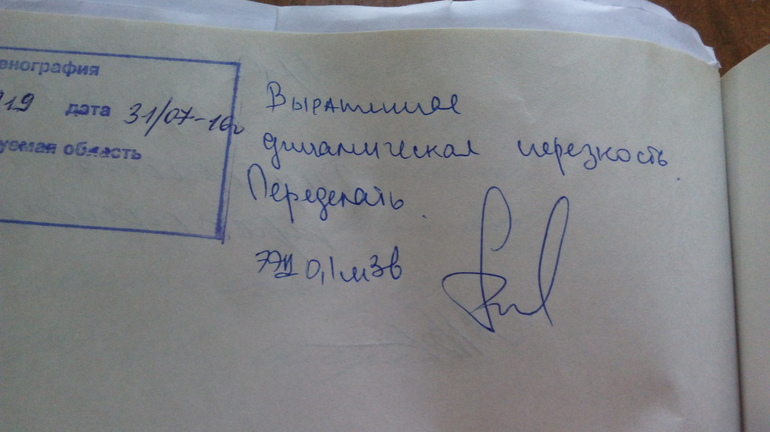 енография
919 дата 31/07-16г
уемая область
Выраженная
динамическая нерезкость.
Переделать.
ЭЭД 0,1 мЗв